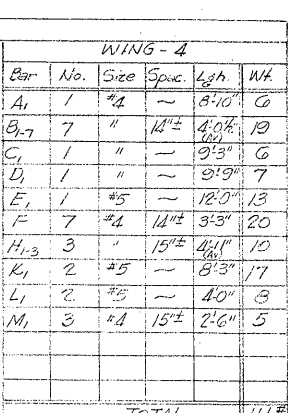 WING - 4
Bar No. Size Spac. Lgh. Wt.
A1 1 #4 ~ 8'-10" 6
B1-7 7 " 14"± 4'-0½" (Av) 19
C1 1 " ~ 9'-3" 6
D1 1 " ~ 9'-9" 7
E1 1 #5 ~ 12'-0" 13
F 7 #4 14"± 3'-3" 20
H1-3 3 " 15"± 4'-11" (Av) 10
K1 2 #5 ~ 8'-3" 17
L1 2 #5 ~ 4'-0" 8
M1 3 #4 15"± 2'-6" 5
TOTAL 111#